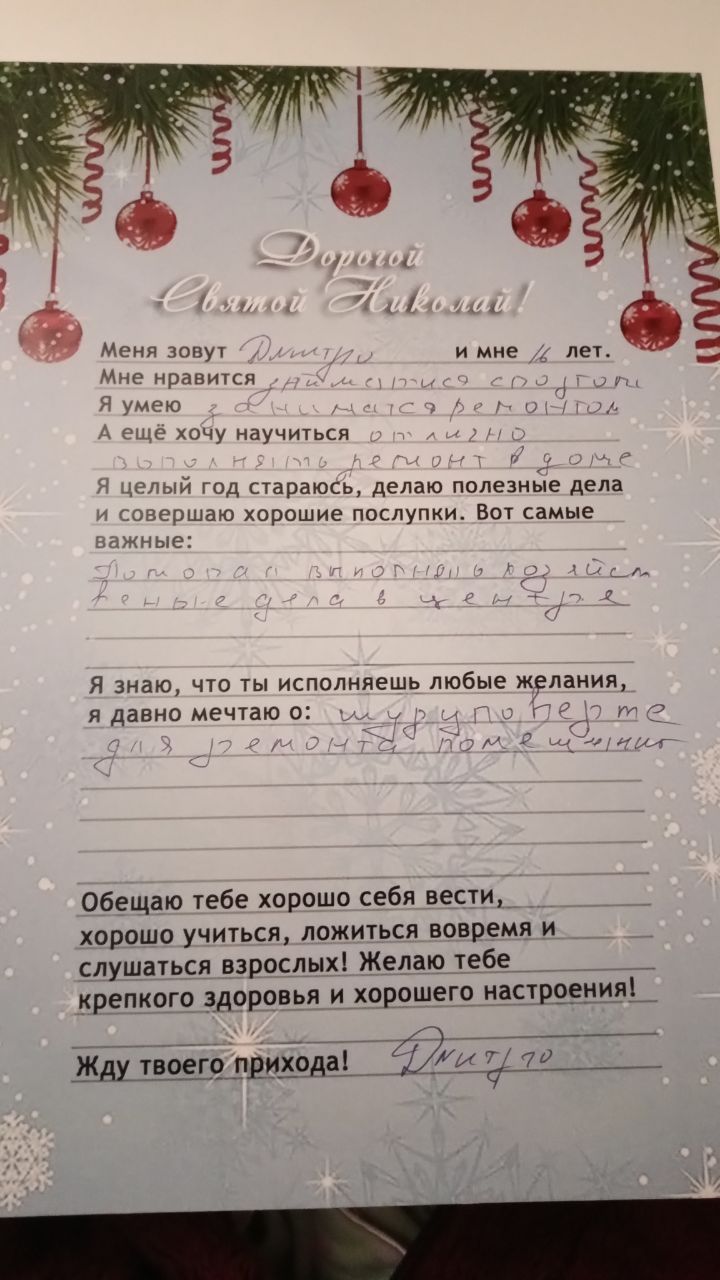 Дорогой
Святой Николай!
Меня зовут Дмитро и мне 16 лет.
Мне нравится займатися спортом
Я умею заниматся ремонтом
А ещё хочу научиться отлично
выполнять ремонт в доме
Я целый год стараюсь, делаю полезные дела
и совершаю хорошие послупки. Вот самые
важные:
Помогал выполнять хозяйст
веные дела в центре
Я знаю, что ты исполняешь любые желания,
я давно мечтаю о: шуруповерте
для ремонта
Обещаю тебе хорошо себя вести,
хорошо учиться, ложиться вовремя и
слушаться взрослых! Желаю тебе
крепкого здоровья и хорошего настроения!
Жду твоего прихода! Дмитро